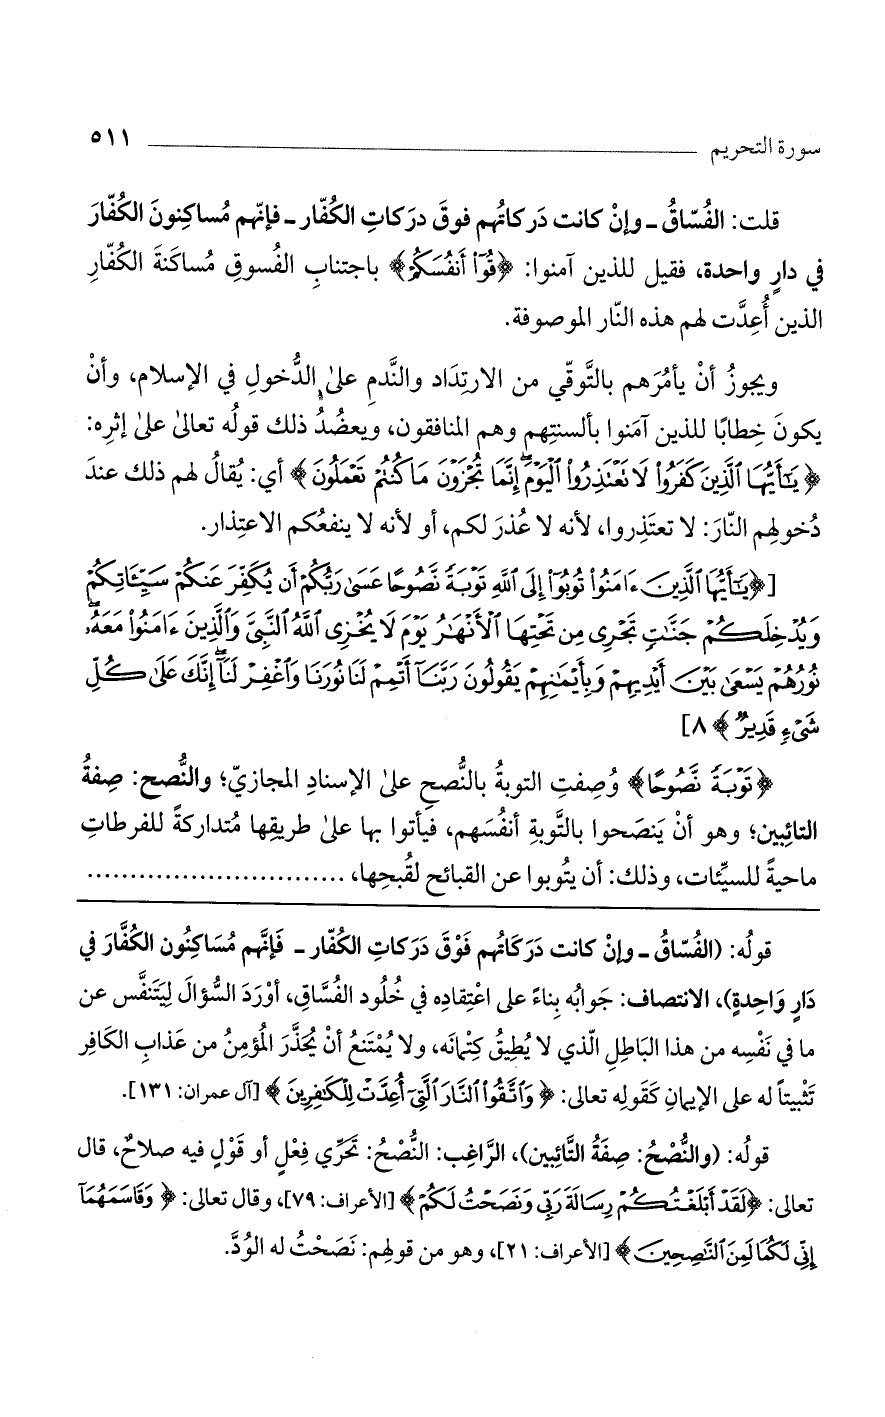 سورة التحريم ٥١١
قلت: الفُسّاقُ ـ وإنْ كانت دَركاتُهم فوقَ دركاتِ الكُفّار ـ فإنّهم مُساكِنونَ الكُفّارَ
في دارٍ واحدة، فقيل للذين آمنوا: ﴿قُوٓاْ أَنفُسَكُمْ﴾ باجتنابِ الفُسوقِ مُساكَنةَ الكُفّارِ
الذين أُعِدَّت لهم هذه النّار الموصوفة.
ويجوزُ أنْ يأمُرَهم بالتَّوقّي من الارتِدَاد والنَّدمِ علىٰ الدُّخولِ في الإسلام، وأنْ
يكونَ خِطابًا للذين آمَنوا بألسنتِهم وهم المنافقون، ويعضُدُ ذلك قولُه تعالىٰ علىٰ إثرِه:
﴿يَٰٓأَيُّهَا ٱلَّذِينَ كَفَرُواْ لَا تَعْتَذِرُواْ ٱلْيَوْمَ ۖ إِنَّمَا تُجْزَوْنَ مَا كُنتُمْ تَعْمَلُونَ﴾ أي: يُقالُ لهم ذلك عندَ
دُخولِهم النّارَ: لا تعتَذِروا، لأنه لا عُذرَ لكم، أو لأنه لا ينفعُكم الاعتِذار.
[﴿يَٰٓأَيُّهَا ٱلَّذِينَ ءَامَنُواْ تُوبُوٓاْ إِلَى ٱللَّهِ تَوْبَةً نَّصُوحًا عَسَىٰ رَبُّكُمْ أَن يُكَفِّرَ عَنكُمْ سَيِّـَٔاتِكُمْ
وَيُدْخِلَكُمْ جَنَّٰتٍ تَجْرِى مِن تَحْتِهَا ٱلْأَنْهَٰرُ يَوْمَ لَا يُخْزِى ٱللَّهُ ٱلنَّبِىَّ وَٱلَّذِينَ ءَامَنُواْ مَعَهُۥ ۖ
نُورُهُمْ يَسْعَىٰ بَيْنَ أَيْدِيهِمْ وَبِأَيْمَٰنِهِمْ يَقُولُونَ رَبَّنَآ أَتْمِمْ لَنَا نُورَنَا وَٱغْفِرْ لَنَآ ۖ إِنَّكَ عَلَىٰ كُلِّ
شَىْءٍ قَدِيرٌ﴾ ٨]
﴿تَوْبَةً نَّصُوحًا﴾ وُصِفتِ التوبةُ بالنُّصحِ علىٰ الإسنادِ المجازيّ؛ والنُّصح: صِفةُ
التائبين؛ وهو أنْ يَنصَحوا بالتَّوبةِ أنفُسَهم، فيأتوا بها علىٰ طريقِها مُتداركةً للفرطاتِ
ماحيةً للسيِّئات، وذلك: أن يتُوبوا عن القبائحِ لقُبحِها، .............................
قولُه: (الفُسّاقُ ـ وإنْ كانت دَرَكَاتُهم فَوْقَ دَركاتِ الكُفّار ـ فَإنَّهم مُسَاكِنُون الكُفَّارَ في
دَارٍ وَاحِدةٍ)، الانتصاف: جَوابُه بِناءً على اعْتِقادِه في خُلُود الفُسَّاقِ، أوْرَدَ السُّؤالَ لِيَتَنفَّس عن
ما في نَفْسِه من هذا البَاطِلِ الّذي لا يُطِيقُ كِتْمانَه، ولا يُمْتَنعُ أنْ يُحذَّرَ المُؤمِنُ من عَذابِ الكَافِرِ
تَثْبِيتاً له على الإيمانِ كَقَولِه تعالى: ﴿وَٱتَّقُواْ ٱلنَّارَ ٱلَّتِىٓ أُعِدَّتْ لِلْكَٰفِرِينَ﴾ [آل عمران: ١٣١].
قولُه: (والنُّصْحُ: صِفَةُ التَّائِبين)، الرَّاغِب: النُّصْحُ: تَحرِّي فِعْلٍ أو قَوْلٍ فيه صلاحٌ، قال
تعالى: ﴿لَقَدْ أَبْلَغْتُكُمْ رِسَالَةَ رَبِّى وَنَصَحْتُ لَكُمْ﴾ [الأعراف: ٧٩]، وقال تعالى: ﴿وَقَاسَمَهُمَآ
إِنِّى لَكُمَا لَمِنَ ٱلنَّٰصِحِينَ﴾ [الأعراف: ٢١]، وهو من قولِهم: نَصَحْتُ له الوُدَّ.